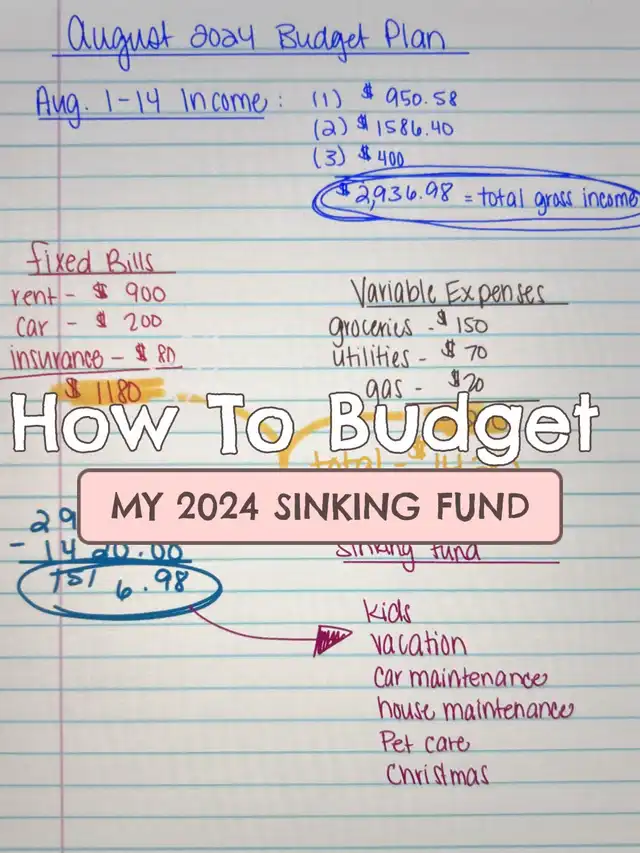 August 2024 Budget Plan
Aug. 1-14 Income: (1) $ 950.58
(2) $ 1586.40
(3) $ 400
$2,936.98 = total gross income
fixed Bills
rent - $ 900
car - $ 200
insurance - $ 80
$ 1180
Variable Expenses
groceries - $ 150
utilities - $ 70
gas - $20
How To Budget
total - $
MY 2024 SINKING FUND
29
- 1420.00
1516.98
Sinking fund
kids
vacation
car maintenance
house maintenance
Pet care
Christmas